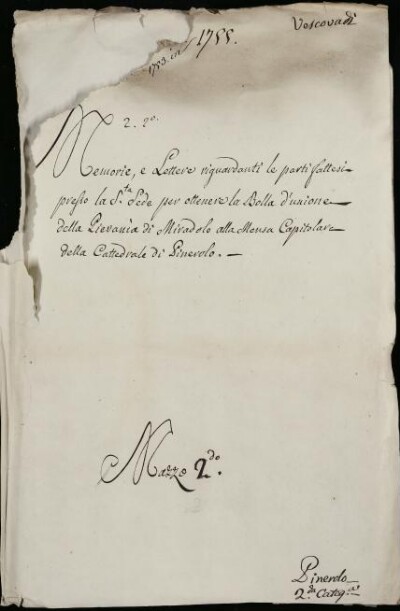 Vescovadi
1753. in 1755.
N. 2.º
Memorie, e Lettere riguardanti le parti fattesi
presso la S.ta Sede per ottenere la Bolla d'unione
della Pievania di Miradolo alla Mensa Capitolare
della Cattedrale di Pinerolo. —
Mazzo 2.do
Pinerolo
2.da Categ.a